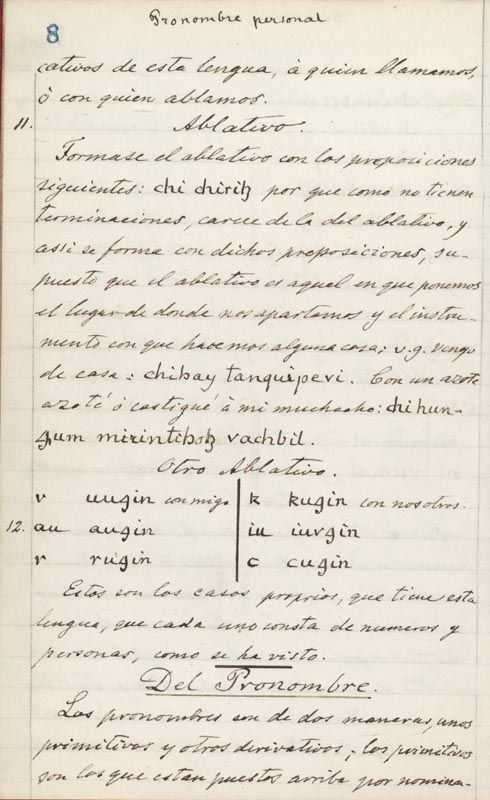 8
Pronombre personal
cativos de esta lengua, à quien llamamos,
ò con quien ablamos.
11. Ablativo.
Formase el ablativo con las proposiciones
siguientes: chi chiriꜩ por que como no tienen
terminaciones, carece de la del ablativo, y
assi se forma con dichas preposiciones, su-
puesto que el ablativo es aquel en que ponemos
el lugar de donde nos apartamos y el instru-
mento con que hacemos alguna cosa; v.g. vengo
de casa: chibay tanquipevi. Con un azote
azoté ò castigué à mi muchacho: chi hun-
ꜭum mixintiboꜩ vachbil.
Otro Ablativo.
v uugin conmigo k kugin con nosotros.
12. au augin iu iuvgin
r rugin c cugin
Estos son los casos proprios, que tiene esta
lengua, que cada uno consta de numeros y
personas, como se ha visto.
Del Pronombre.
Los pronombres son de dos maneras, unos
primitivos y otros derivativos; los primitivos
son los que estan puestos arriba por nomina-